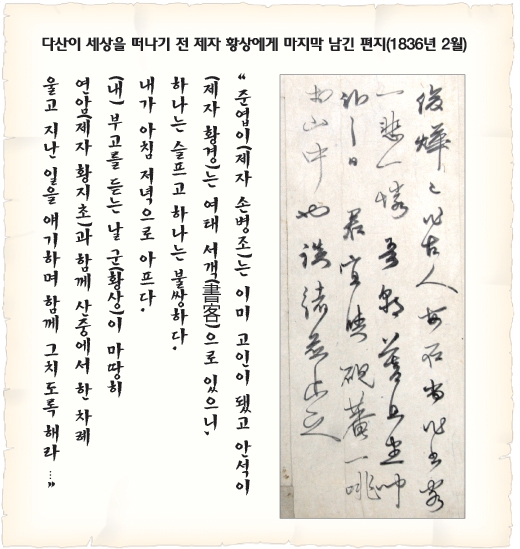 다산이 세상을 떠나기 전 제자 황상에게 마지막 남긴 편지(1836년 2월)
“준엽이(제자 손병조)는 이미 고인이 됐고 안석이
(제자 황경)는 여태 서객(書客)으로 있으니,
하나는 슬프고 하나는 불쌍하다.
내가 아침 저녁으로 아프다.
(내) 부고를 듣는 날 군(황상)이 마땅히
연암(제자 황지초)과 함께 산중에서 한 차례
울고 지난 일을 얘기하며 함께 그치도록 해라 …”
俊燁 作古人 安石尚作書客
一悲一憐 吾朝暮
之日 君宜與硯菴一
山中